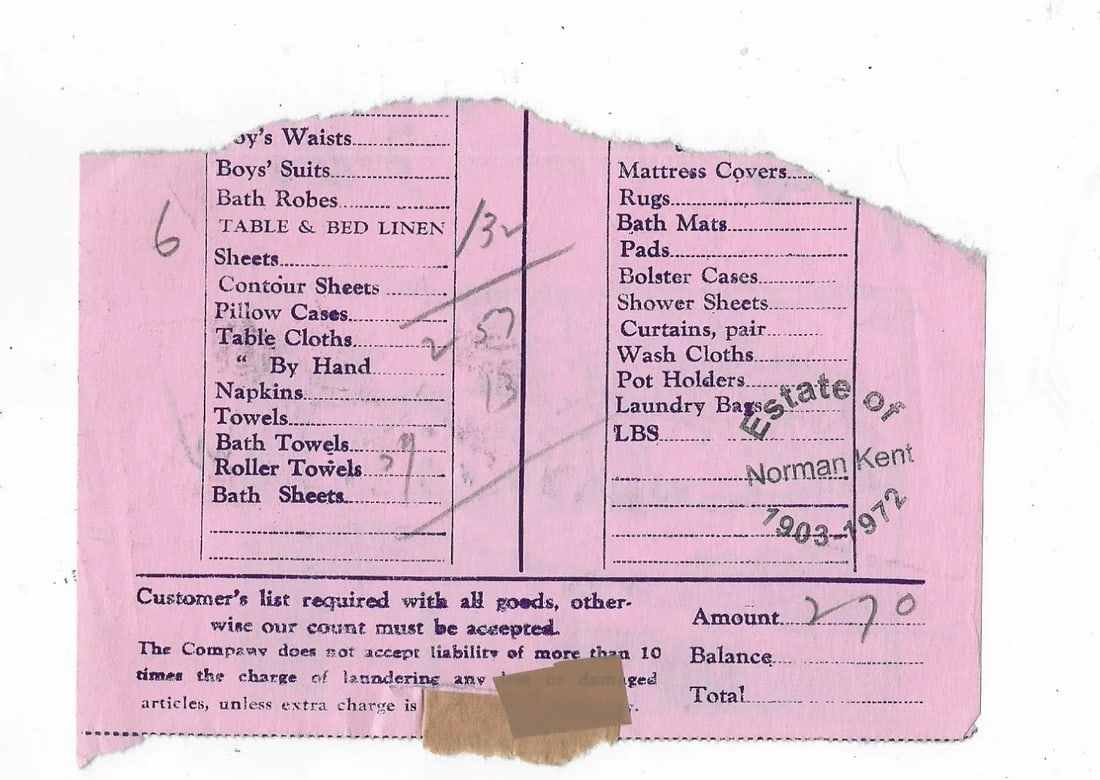 oy's Waists
Boys' Suits
Bath Robes
TABLE & BED LINEN
6
132
Sheets
Contour Sheets
Pillow Cases
Table Cloths
2 57
“ By Hand
13
Napkins
Towels
Bath Towels
Roller Towels
Bath Sheets
Mattress Covers
Rugs
Bath Mats
Pads
Bolster Cases
Shower Sheets
Curtains, pair
Wash Cloths
Pot Holders
Laundry Bags
LBS
Estate of
Norman Kent
1903-1972
Customer's list required with all goods, other-
wise our count must be accepted.
The Company does not accept liability of more than 10
times the charge of laundering any lost or damaged
articles, unless extra charge is
Amount 270
Balance
Total